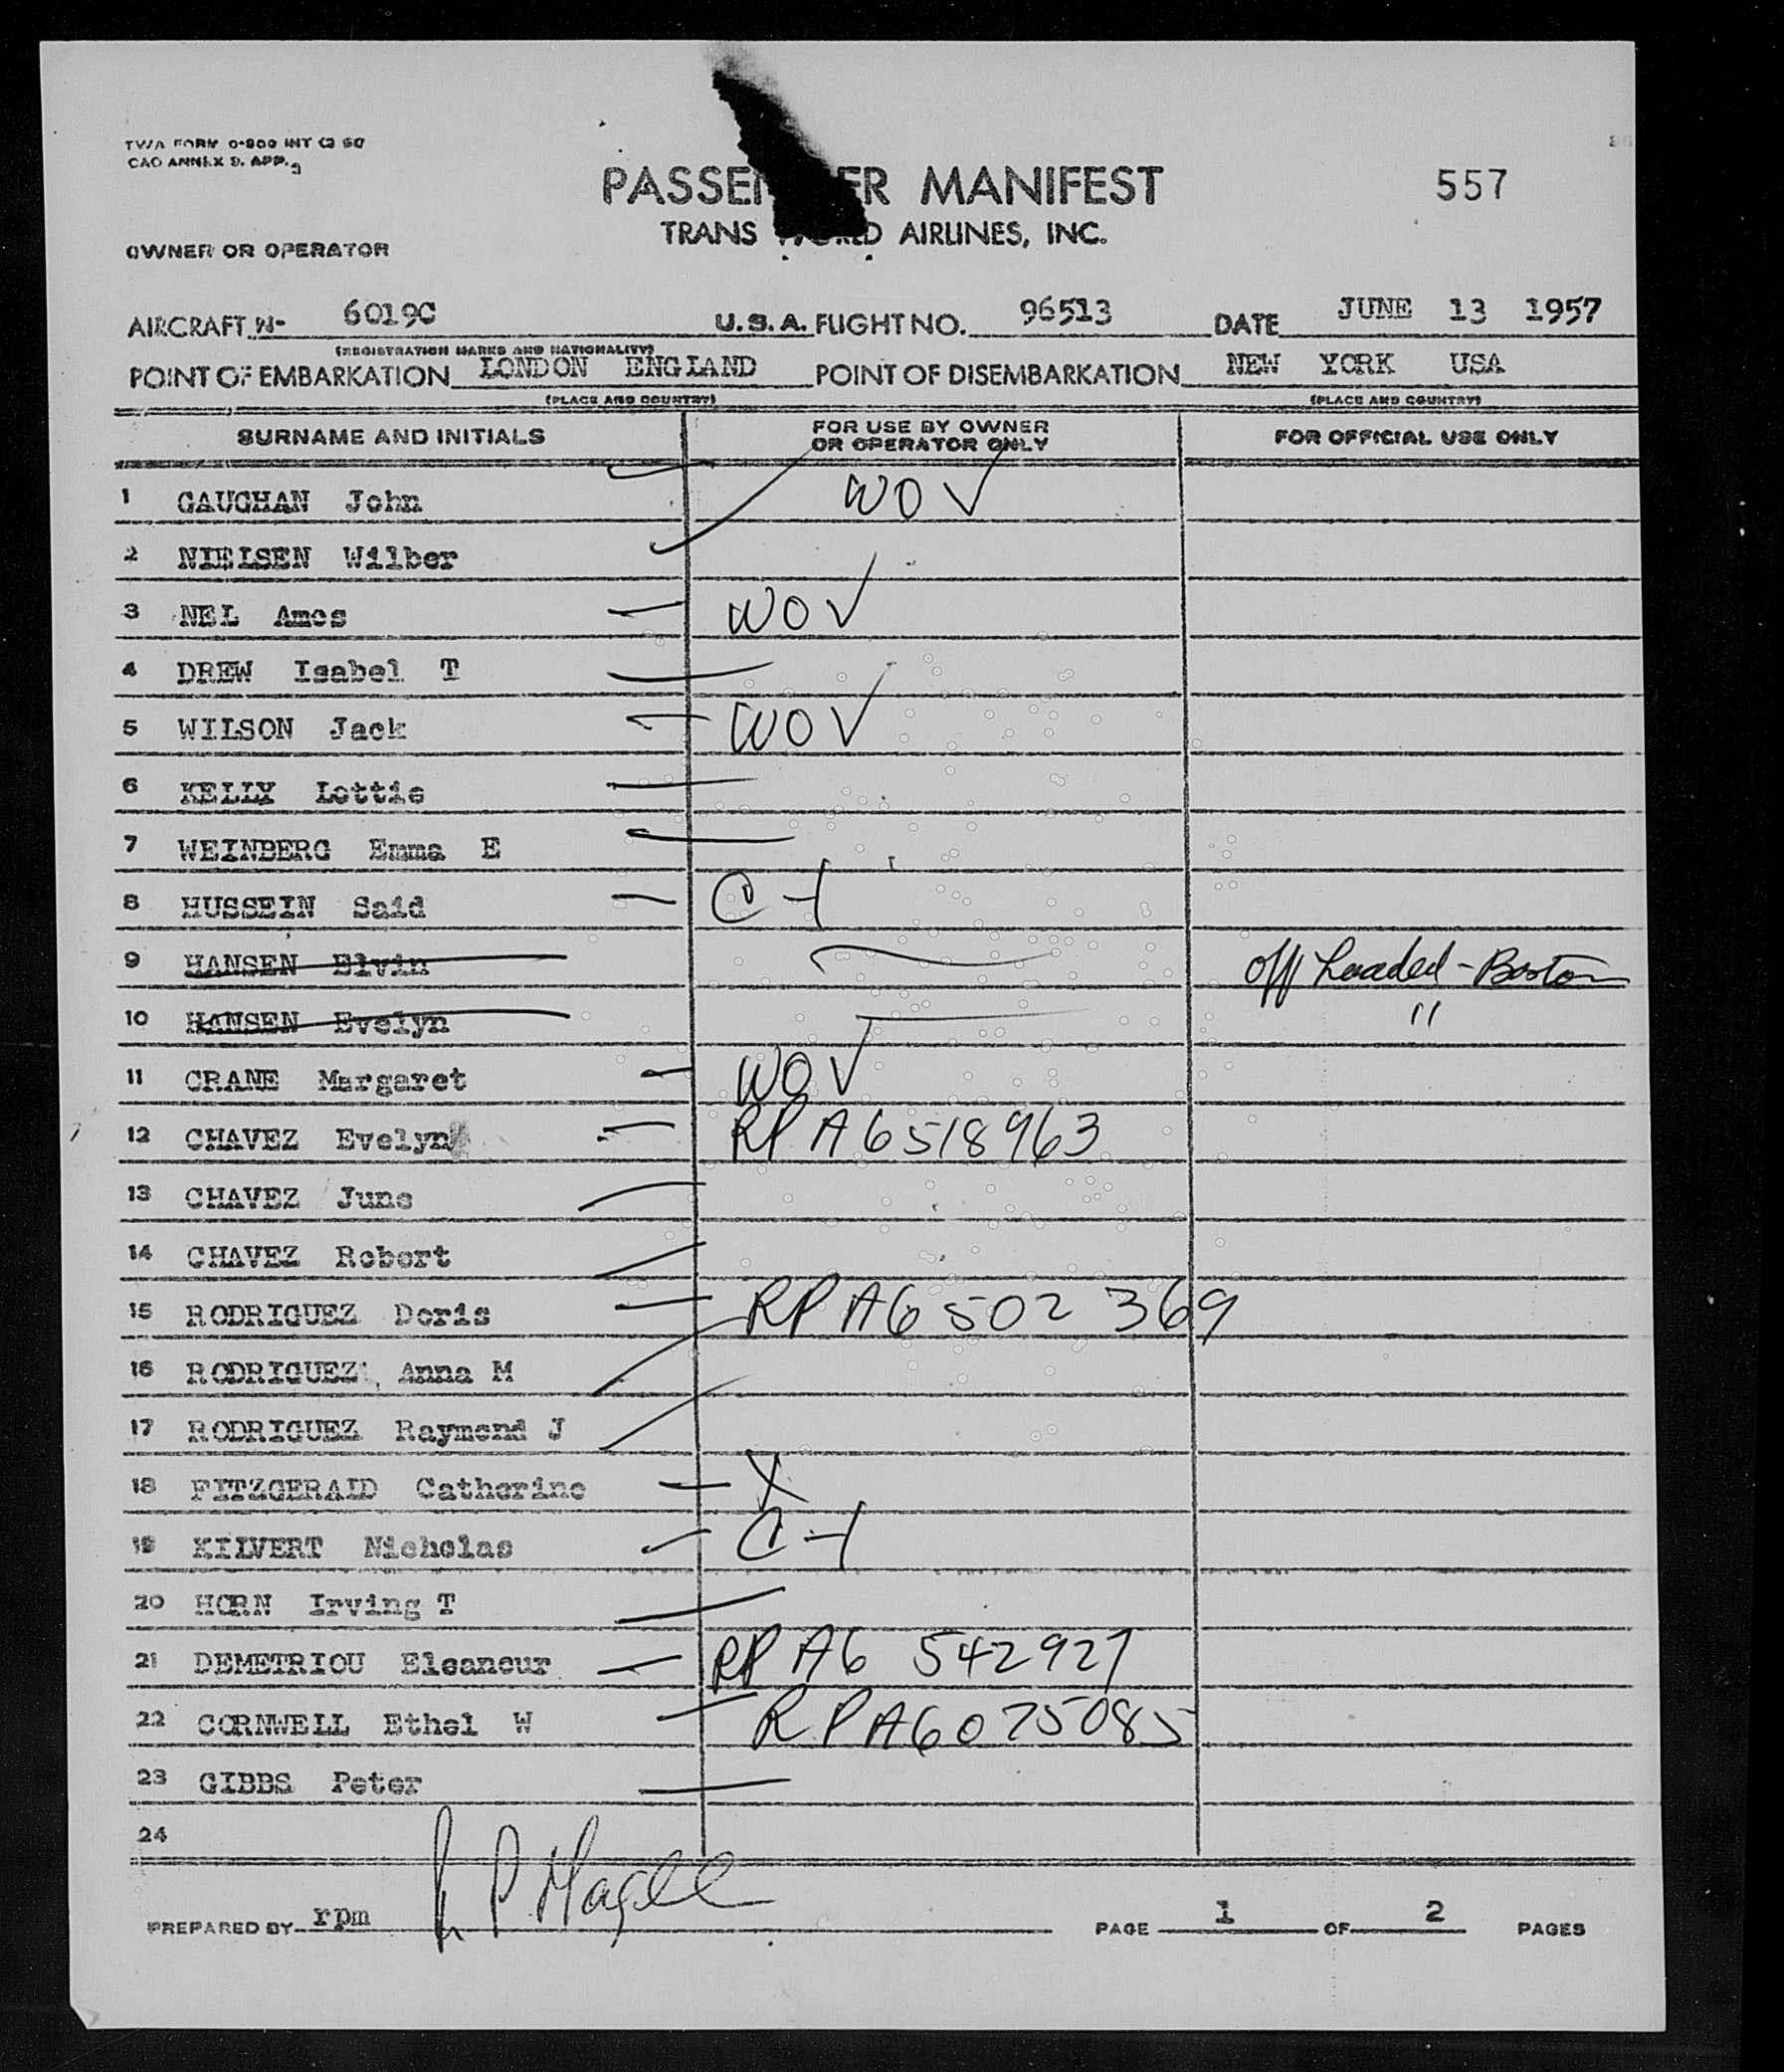 TWA FORM 0-800 INT
CAO ANNEX 9. APP. 3
PASSENGER MANIFEST 557
TRANS WORLD AIRLINES, INC.
OWNER OR OPERATOR
AIRCRAFT N- 6019C U.S.A. FLIGHT NO. 96513 DATE JUNE 13 1957
(REGISTRATION MARKS AND NATIONALITY)
POINT OF EMBARKATION LONDON ENGLAND POINT OF DISEMBARKATION NEW YORK USA
(PLACE AND COUNTRY) (PLACE AND COUNTRY)
SURNAME AND INITIALS FOR USE BY OWNER OR OPERATOR ONLY FOR OFFICIAL USE ONLY
1 GAUGHAN John WO √
2 NIELSEN Wilber
3 NEL Amos WO √
4 DREW Isabel T
5 WILSON Jack WO √
6 KELLY Lottie
7 WEINBERG Emma E
8 HUSSEIN Said C-1
9 HANSEN Elvin Off Loaded - Boston
10 HANSEN Evelyn "
11 CRANE Margaret WO √
12 CHAVEZ Evelyn RP A6518963
13 CHAVEZ June
14 CHAVEZ Robert
15 RODRIGUEZ Doris RP A6 502 369
16 RODRIGUEZ, Anna M
17 RODRIGUEZ Raymond J
18 FITZGERALD Catherine X
19 KILVERT Nicholas C-1
20 HORN Irving T
21 DEMETRIOU Eleaneur RP A6 542927
22 CORNWELL Ethel W RP A6075085
23 GIBBS Peter
24
PREPARED BY rpm PAGE 1 OF 2 PAGES